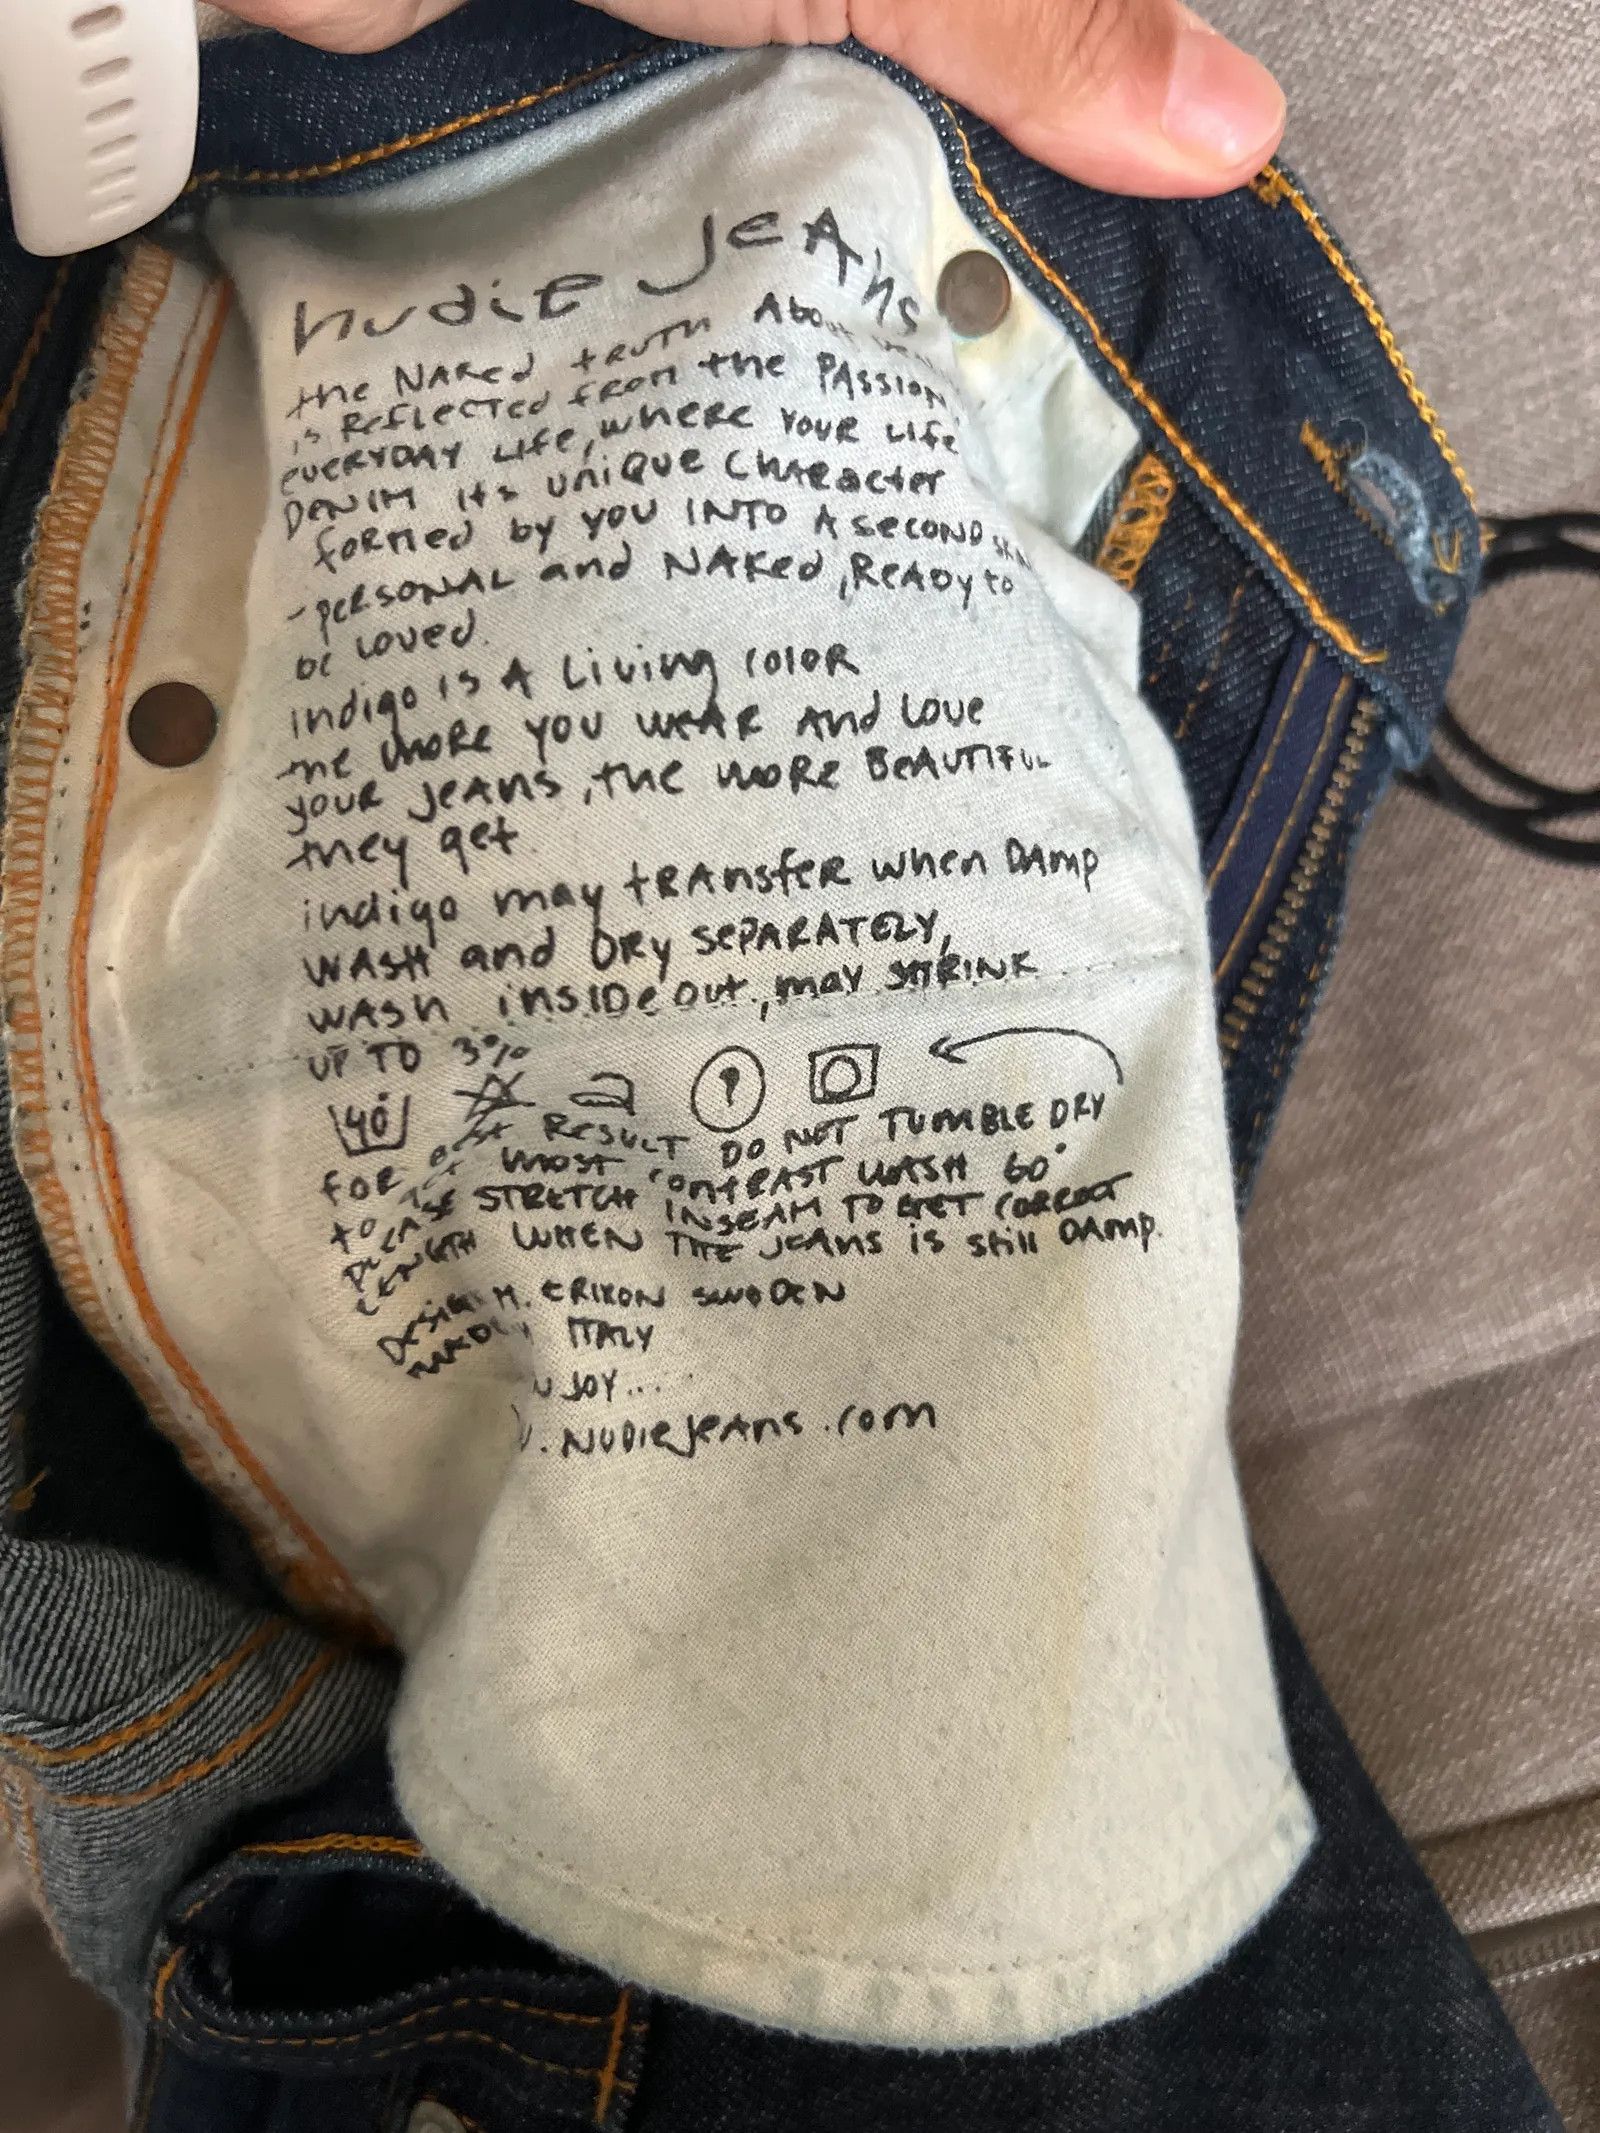 nudie jeans
the NAked tRUTH About
is Reflected from the PASSION
EVERYDAY LIfe, wHERE YOUR LIfe
DENIM its UNIQUE CHARacter
formed by YOU INTO A SECOND SKIN
- PERSONAL and NAKed, READy to
be Loved.
indigo is A Living coloR
the moRe YOU WEAR And Love
youR jeAns, the moRe BeAUTIFUL
they get
indigo may tRAnsfer when DAmp
WASH and DRy SEPARATELY,
WASh insIDe out, may SHRINK
UP TO 3%
40
FOR BEST RESULT DO NOT TUMBLE DRY
TO GET MOST CONTRAST WASH 60°
PLEASE STRETCH INSEAM TO GET CORRECT
LENGTH WHEN THE JEANS is still DAmp.
DESIGN M. ERIKON SWEDEN
MADE ITALY
JOY...
. NUDIEjEAns.com